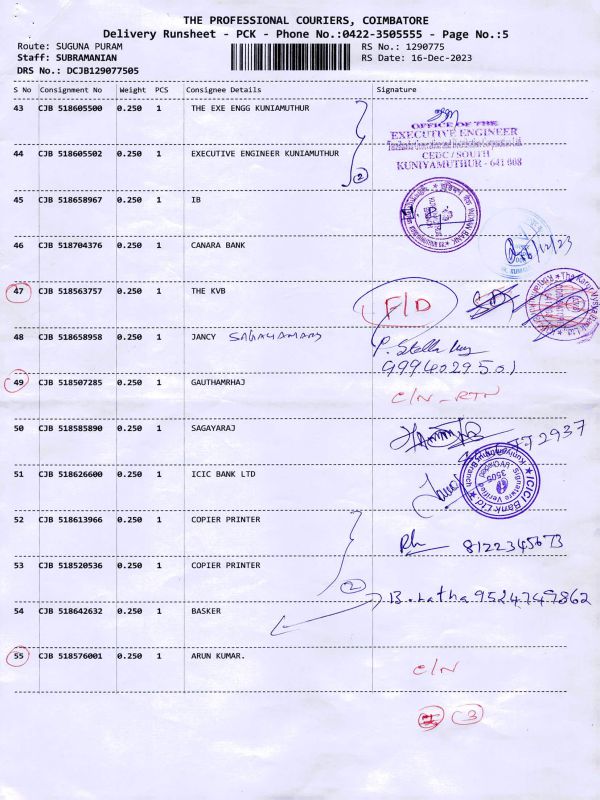 THE PROFESSIONAL COURIERS, COIMBATORE
Delivery Runsheet - PCK - Phone No.:0422-3505555 - Page No.:5
Route: SUGUNA PURAM RS No.: 1290775
Staff: SUBRAMANIAN RS Date: 16-Dec-2023
DRS No.: DCJB129077505
S No Consignment No Weight PCS Consignee Details Signature
43 CJB 518605500 0.250 1 THE EXE ENGG KUNIAMUTHUR
OFFICE OF THE
EXECUTIVE ENGINEER
CEDC/SOUTH
KUNIYAMUTHUR - 641 008
44 CJB 518605502 0.250 1 EXECUTIVE ENGINEER KUNIAMUTHUR
2
45 CJB 518658967 0.250 1 IB
INDIAN BANK
46 CJB 518704376 0.250 1 CANARA BANK
16/12/23
47 CJB 518563757 0.250 1 THE KVB F/D
48 CJB 518658958 1 JANCY
P. Stella
9994029501
49 CJB 518507285 0.250 1 GAUTHAMRHAJ C/N - RTN
50 CJB 518585890 0.250 1 SAGAYARAJ
2937
51 CJB 518626600 0.250 1 ICIC BANK LTD
ICICI Bank Ltd
Signature Verified
Kuniyamuthur Branch
52 CJB 518613966 0.250 1 COPIER PRINTER
8122345673
53 CJB 518520536 0.250 1 COPIER PRINTER
2
54 CJB 518642632 0.250 1 BASKER B. Latha 9524749862
55 CJB 518576001 0.250 1 ARUN KUMAR. C/N
3